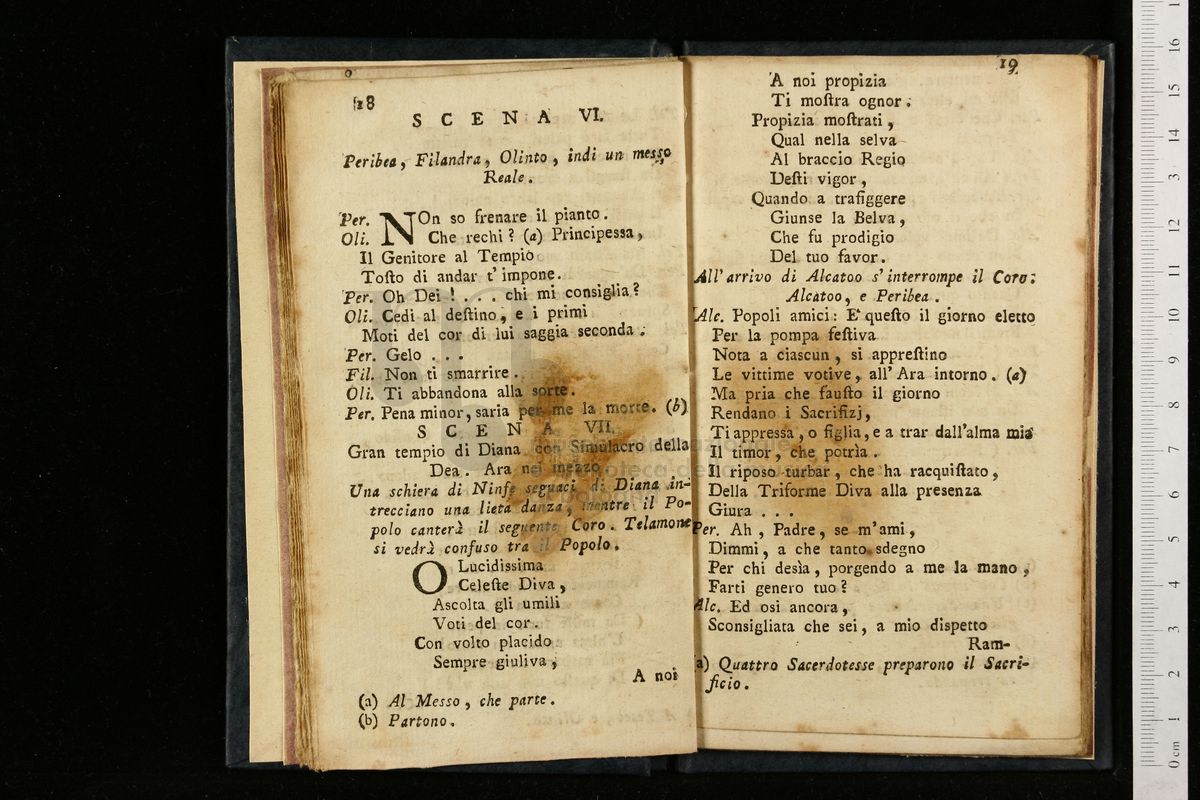 18
SCENA VI.
Peribea, Filandra, Olinto, indi un messo
Reale.
Per. NOn so frenare il pianto.
Oli. Che rechi? (a) Principessa,
Il Genitore al Tempio
Toſto di andar t' impone.
Per. Oh Dei! . . . chi mi consiglia?
Oli. Cedi al deſtino, e i primi
Moti del cor di lui saggia seconda.
Per. Gelo . . .
Fil. Non ti smarrire.
Oli. Ti abbandona alla sorte.
Per. Pena minor, saria per me la morte. (b)
SCENA VII.
Gran tempio di Diana con Simulacro della
Dea. Ara nel mezzo
Una schiera di Ninfe seguaci di Diana in-
trecciano una lieta danza, mentre il Po-
polo canterà il seguente Coro. Telamone
si vedrà confuso tra il Popolo.
O Lucidissima
Celeſte Diva,
Ascolta gli umili
Voti del cor.
Con volto placido
Sempre giuliva,
A noi
(a) Al Messo, che parte.
(b) Partono.
19
A noi propizia
Ti moſtra ognor.
Propizia moſtrati,
Qual nella selva
Al braccio Regio
Deſti vigor,
Quando a trafiggere
Giunse la Belva,
Che fu prodigio
Del tuo favor.
All' arrivo di Alcatoo s' interrompe il Coro:
Alcatoo, e Peribea.
Alc. Popoli amici: E' queſto il giorno eletto
Per la pompa feſtiva
Nota a ciascun, si appreſtino
Le vittime votive, all' Ara intorno. (a)
Ma pria che fauſto il giorno
Rendano i Sacrifizj,
Ti appressa, o figlia, e a trar dall'alma mia
Il timor, che potrìa.
Il riposo turbar, che ha racquiſtato,
Della Triforme Diva alla presenza
Giura . . .
Per. Ah, Padre, se m'ami,
Dimmi, a che tanto sdegno
Per chi desìa, porgendo a me la mano,
Farti genero tuo?
Alc. Ed osi ancora,
Sconsigliata che sei, a mio dispetto
Ram-
(a) Quattro Sacerdotesse preparono il Sacri-
ficio.